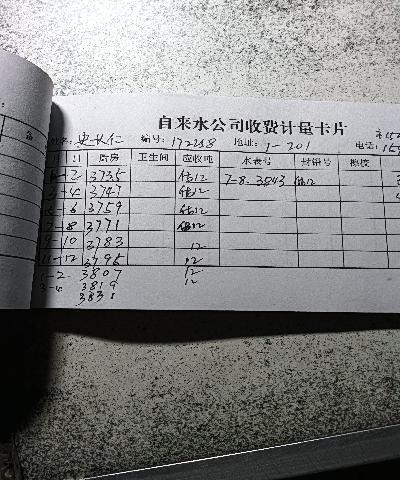 自来水公司收费计量卡片
姓名: 史长仁 编号: 172258 地址: 7-201 电话: 155
月 日 厨房 卫生间 应收吨 水表号 封铅号 換校
1-2 3735 估12 7-8.3843 估12
3-4 3747 估12
5-6 3759 估12
7-8 3771 估12
9-10 3783 12
11-12 3795 12
1-2 3807 12
3-4 3819 12
3831